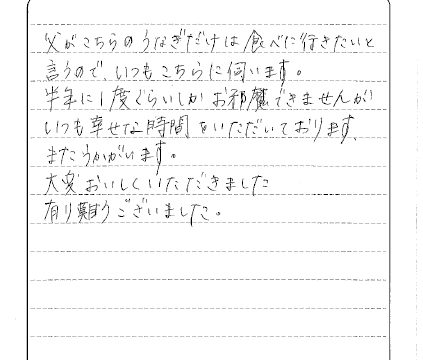 父がこちらのうなぎだけは食べに行きたいと
言うので、いつもこちらに伺います。
半年に1度ぐらいしかお邪魔できませんが
いつも幸せな時間をいただいております、
またうかがいます。
大変おいしくいただきました
有り難うございました。